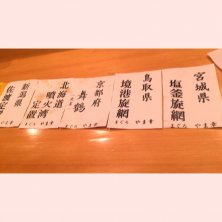 宮城県
塩釜旋網
まぐろ やま幸
鳥取県
境港旋網
まぐろ やま幸
京都府
舞鶴
北海道
噴火湾
定置
まぐろ やま幸
新潟県
佐渡定置